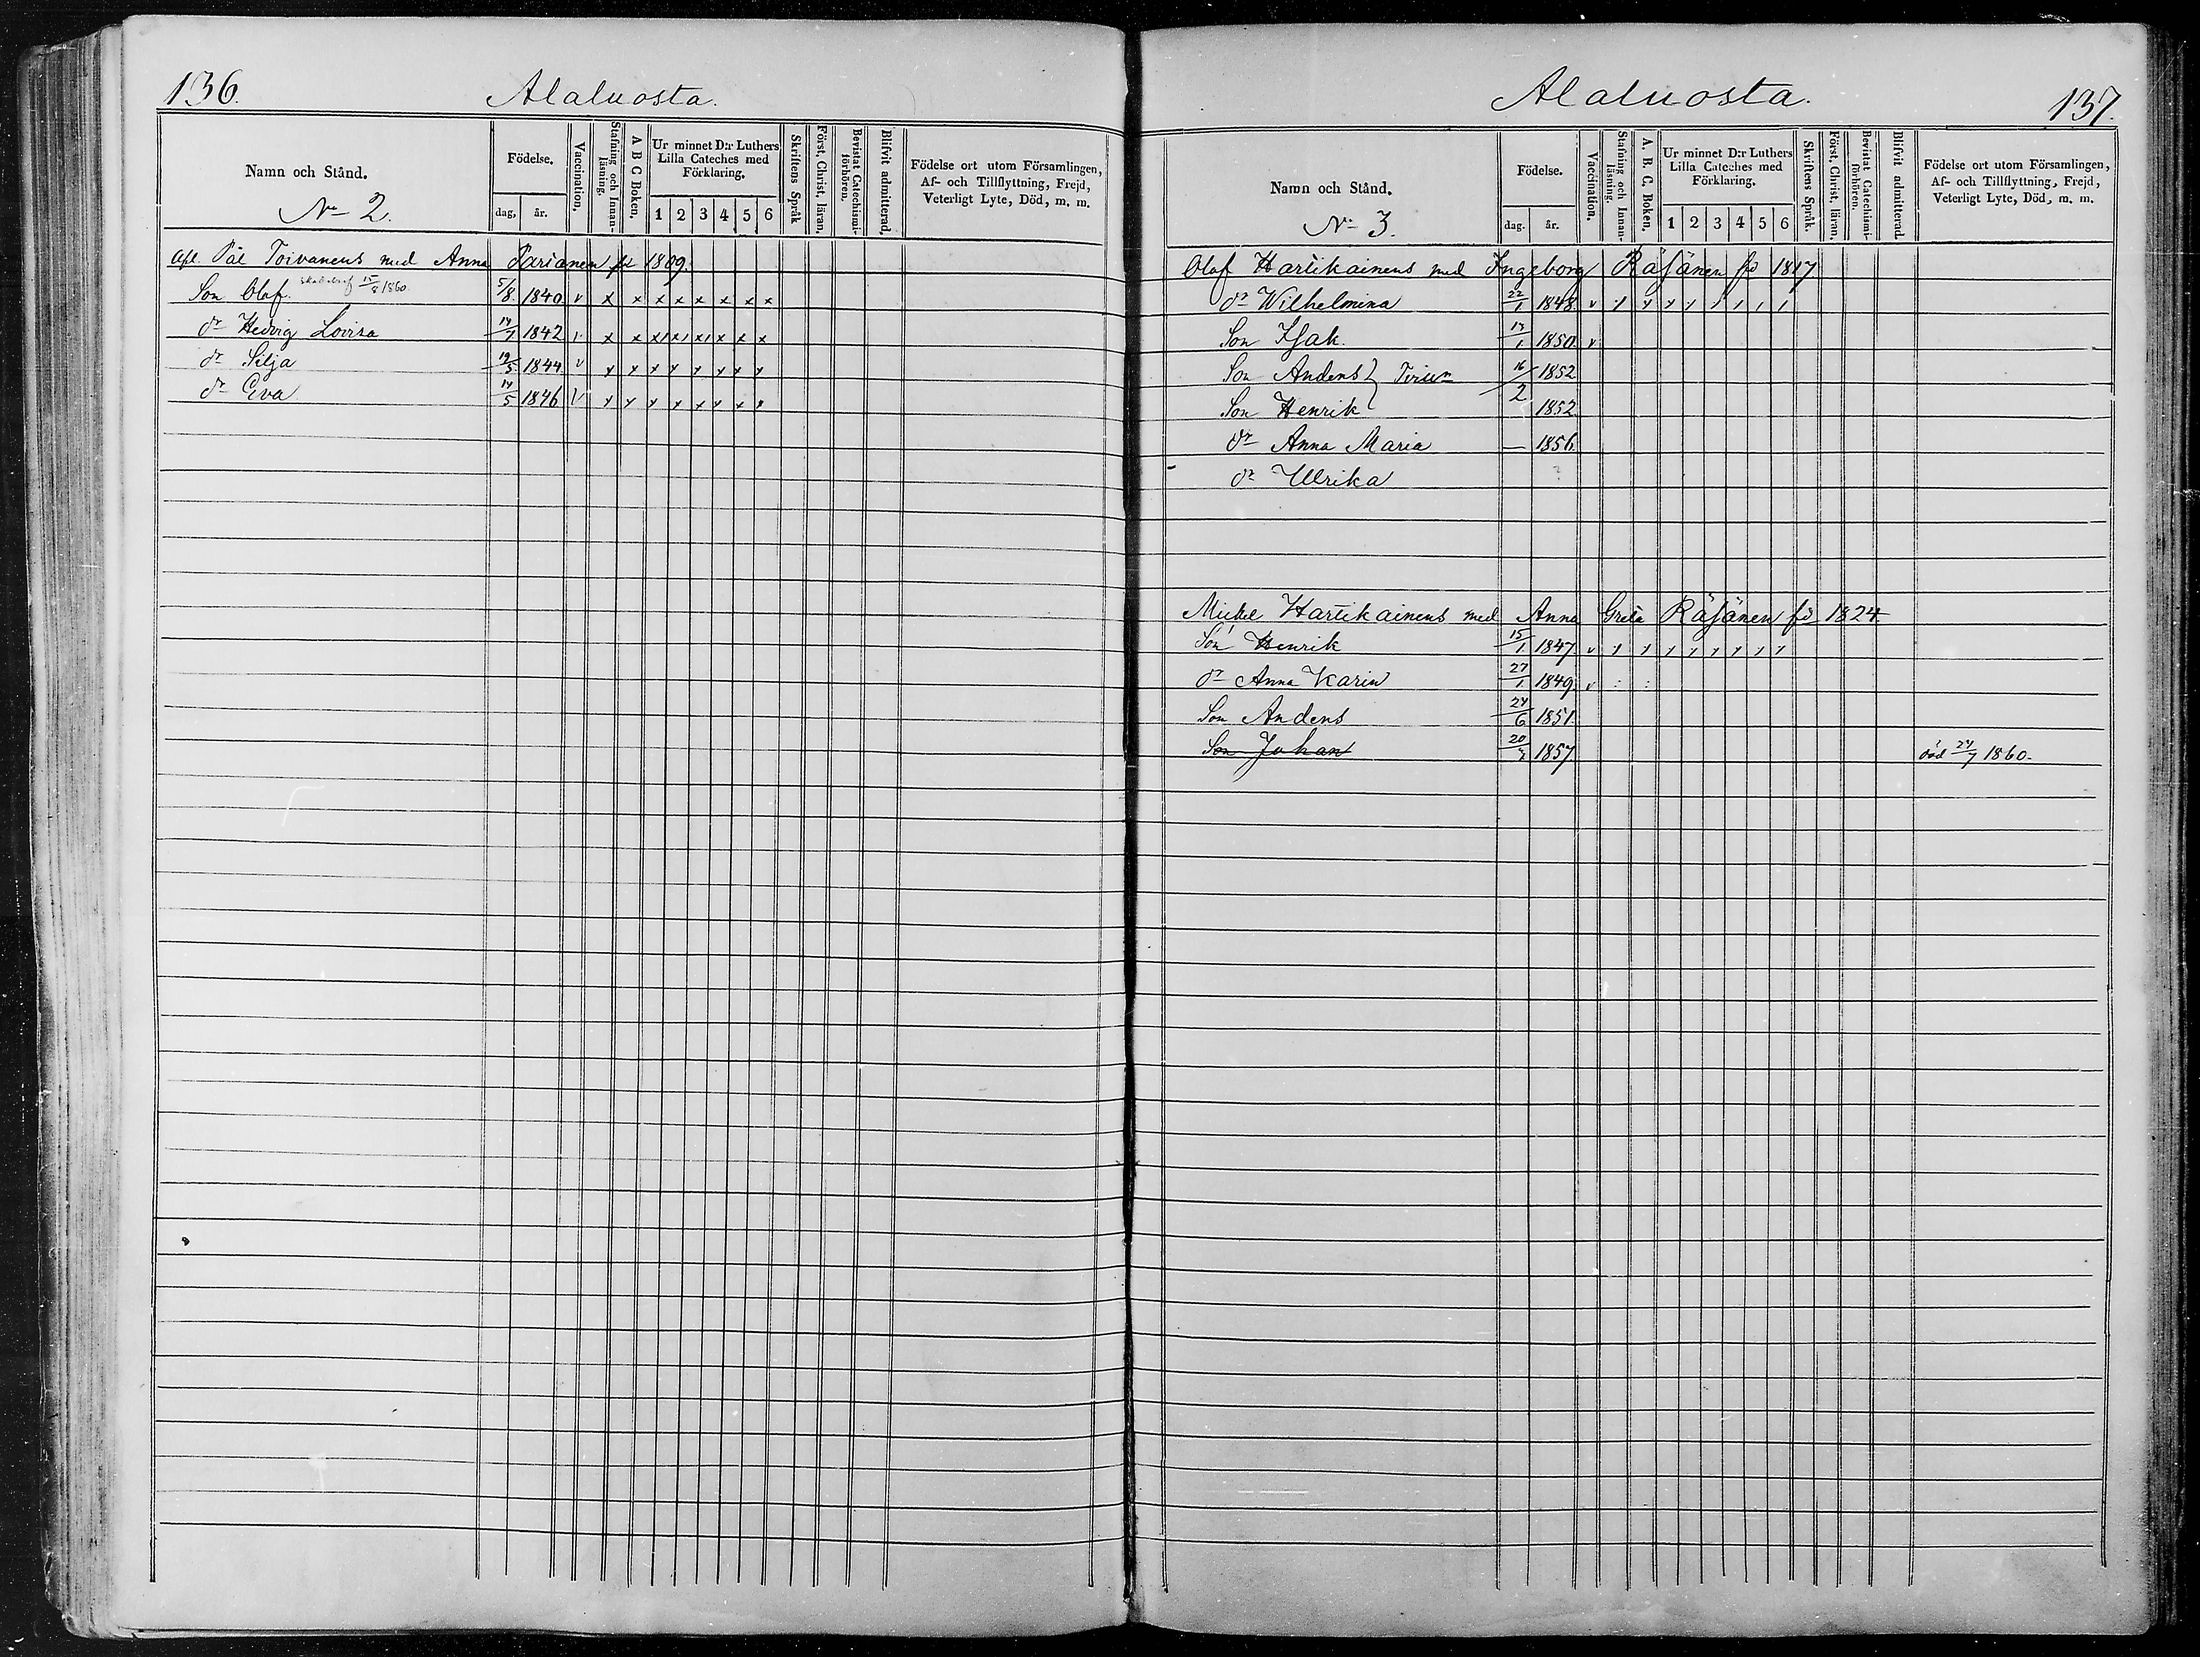 136.
Alaluosta.
Namn och Stånd.
No 2.
Födelse.
dag, år.
Vaccination.
Stafning och Innan-läsning.
A B C Boken.
Ur minnet D:r Luthers Lilla Cateches med Förklaring.
1 2 3 4 5 6
Skriftens Språk
Först, Christ, läran.
Bevistat Catechismi-förhören.
Blifvit admitterad.
Födelse ort utom Församlingen, Af- och Tillflyttning, Frejd, Veterligt Lyte, Död, m. m.
afl. Pål Toivanens med Anna Parianen fd 1809.
Son Olof. 15/8 1860. 5/8. 1840 v x x x x x x x x
dr Hedvig Lovisa 14/7 1842 v x x x x x x x x
dr Silja 19/5 1844 v x x x x x x x x
dr Eva 14/5 1846 v x x x x x x x x
Alaluosta.
137.
Namn och Stånd.
No 3.
Födelse.
dag. år.
Vaccination.
Stafning och Innan-läsning.
A. B. C. Boken.
Ur minnet D:r Luthers Lilla Cateches med Förklaring.
1 2 3 4 5 6
Skriftens Språk.
Först, Christ, läran.
Bevistat Catechismi-förhören.
Blifvit admitterad.
Födelse ort utom Församlingen, Af- och Tillflyttning, Frejd, Veterligt Lyte, Död, m. m.
Olof Hartikainens med Ingeborg Räsänen fd 1817
dr Wilhelmina 22/1 1848. v
Son Isak. 17/1 1850 v
Son Anders } 16/2 1852
Son Henrik 1852
dr Anna Maria — 1856.
dr Ulrika
Mickel Hartikainens med Anna Greta Räsänen fd 1824
Son Henrik 15/1 1847 v
dr Anna Karin 27/1 1849. v
Son Anders 24/6 1851.
Son Johan 20/ 1857 död 24/7 1860.